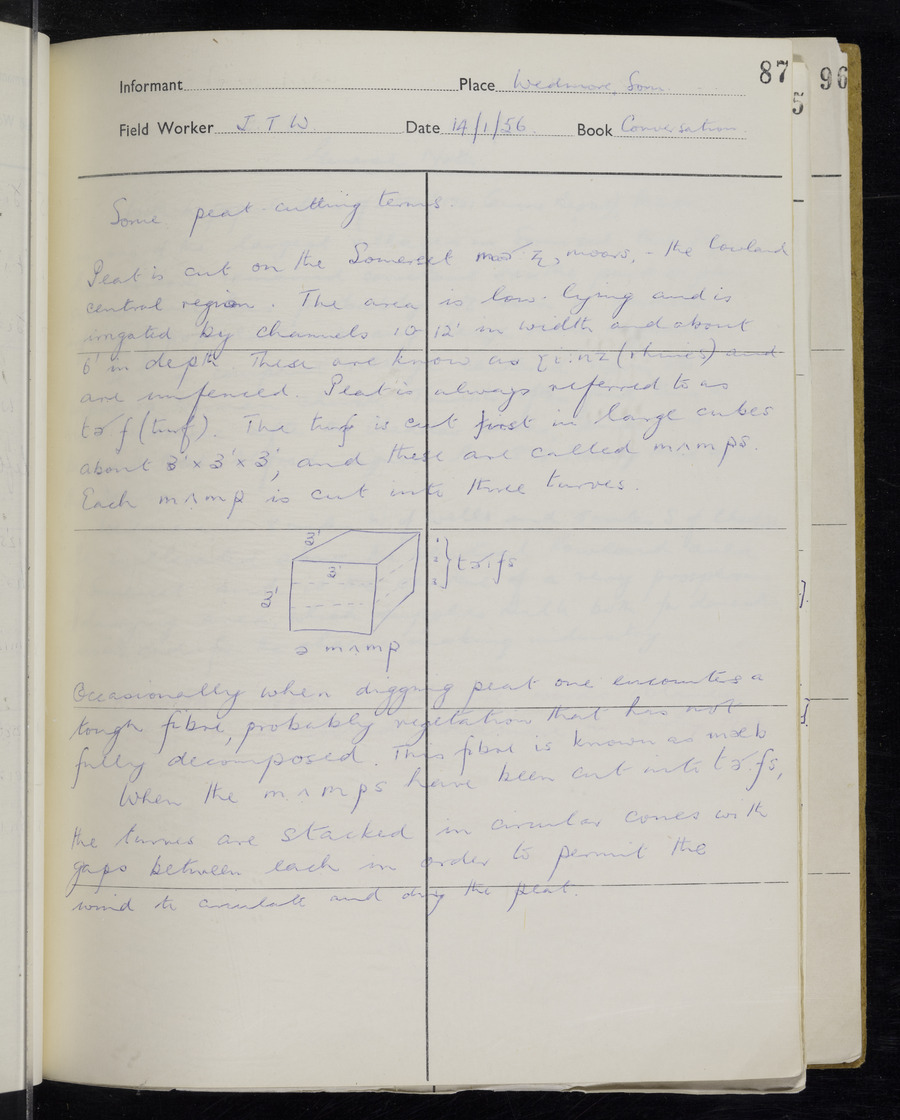 87
96
5
Informant Place Wedmore, Som.
Field Worker J T W. Date 14/1/56. Book Conversation.
Some peat-cutting terms.
Peat is cut on the Somerset moors, - the lowland
central region. The area is low-lying and is
irrigated by channels 10-12' in width and about
6' in depth. These are know as (rhines) and
are unfenced. Peat is always referred to as
(turf). The turf is cut first in large cubes
about 3' x 3' x 3', and these are called mʌmps.
Each mʌmp is cut into three turves.
3'
3'
3'
1
2
3
tɚ:fs
ə mʌmp
Occasionally when digging peat one encounters a
tough fibre, probably vegetation that has not
fully decomposed. This fibre is known as
When the mʌmps have been cut into tɚ:fs,
the turves are stacked in circular cones with
gaps between each in order to permit the
wind to circulate and dry the peat.